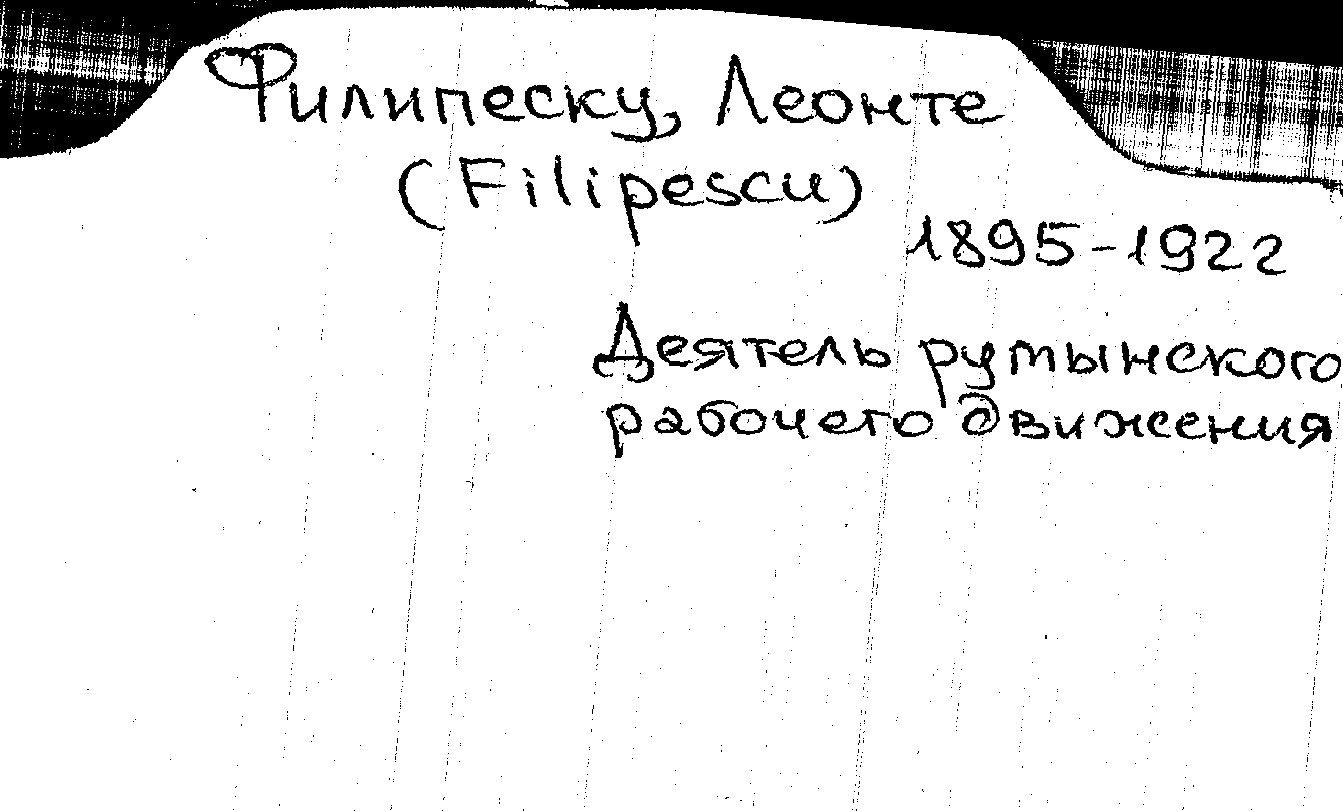 Филипеску, Леонте
(Filipescu)
1895-1922
Деятель румынского
рабочего движения